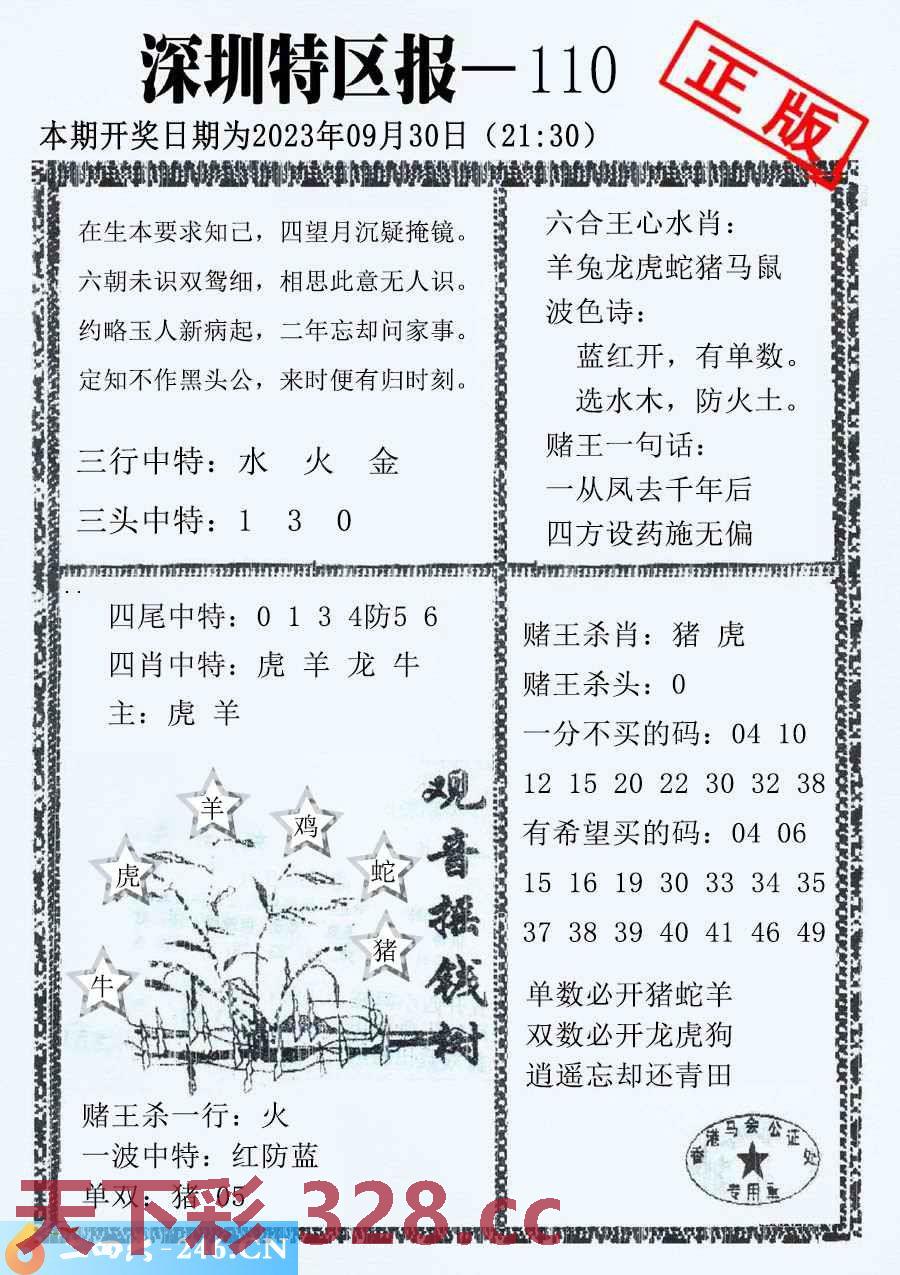 深圳特区报—110
正版
本期开奖日期为2023年09月30日（21:30）
在生本要求知己，四望月沉疑掩镜。
六朝未识双鸳细，相思此意无人识。
约略玉人新病起，二年忘却问家事。
定知不作黑头公，来时便有归时刻。
三行中特：水 火 金
三头中特：1 3 0
六合王心水肖：
羊兔龙虎蛇猪马鼠
波色诗：
蓝红开，有单数。
选水木，防火土。
赌王一句话：
一从凤去千年后
四方设药施无偏
四尾中特：0 1 3 4防5 6
四肖中特：虎 羊 龙 牛
主：虎 羊
羊
鸡
虎
蛇
猪
牛
观音摇钱树
赌王杀一行：火
一波中特：红防蓝
单双：猪 05
赌王杀肖：猪 虎
赌王杀头：0
一分不买的码：04 10
12 15 20 22 30 32 38
有希望买的码：04 06
15 16 19 30 33 34 35
37 38 39 40 41 46 49
单数必开猪蛇羊
双数必开龙虎狗
逍遥忘却还青田
香港马会公证处
专用章
天下彩 328.cc
-246.CN